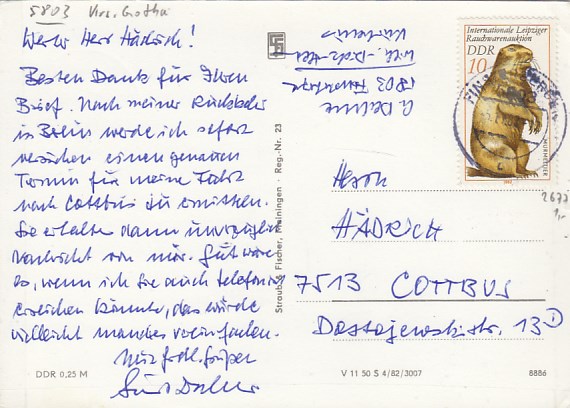 5803 Krs. Gotha
Werter Herr Hädrich!
Besten Dank für Ihren
Brief. Nach meiner Rückkehr
in Berlin werde ich sofort
versuchen einen genauen
Termin für meine Fahrt
nach Cottbus zu ermitteln.
Sie erhalten dann unverzüglich
Nachricht von mir. Gut wäre
es, wenn ich Sie auch telefonisch
erreichen könnte, das würde
vielleicht manches vereinfachen.
Mit frdl. Grüßen
DDR 0,25 M
Straub & Fischer, Meiningen · Reg.-Nr. 23
5803
Internationale Leipziger
Rauchwarenauktion
DDR
10
MURMELTIER
1982
2677
1,-
Herrn
HÄDRICH
7513 COTTBUS
Dostojewskistr. 13
V 11 50 S 4/82/3007
8886